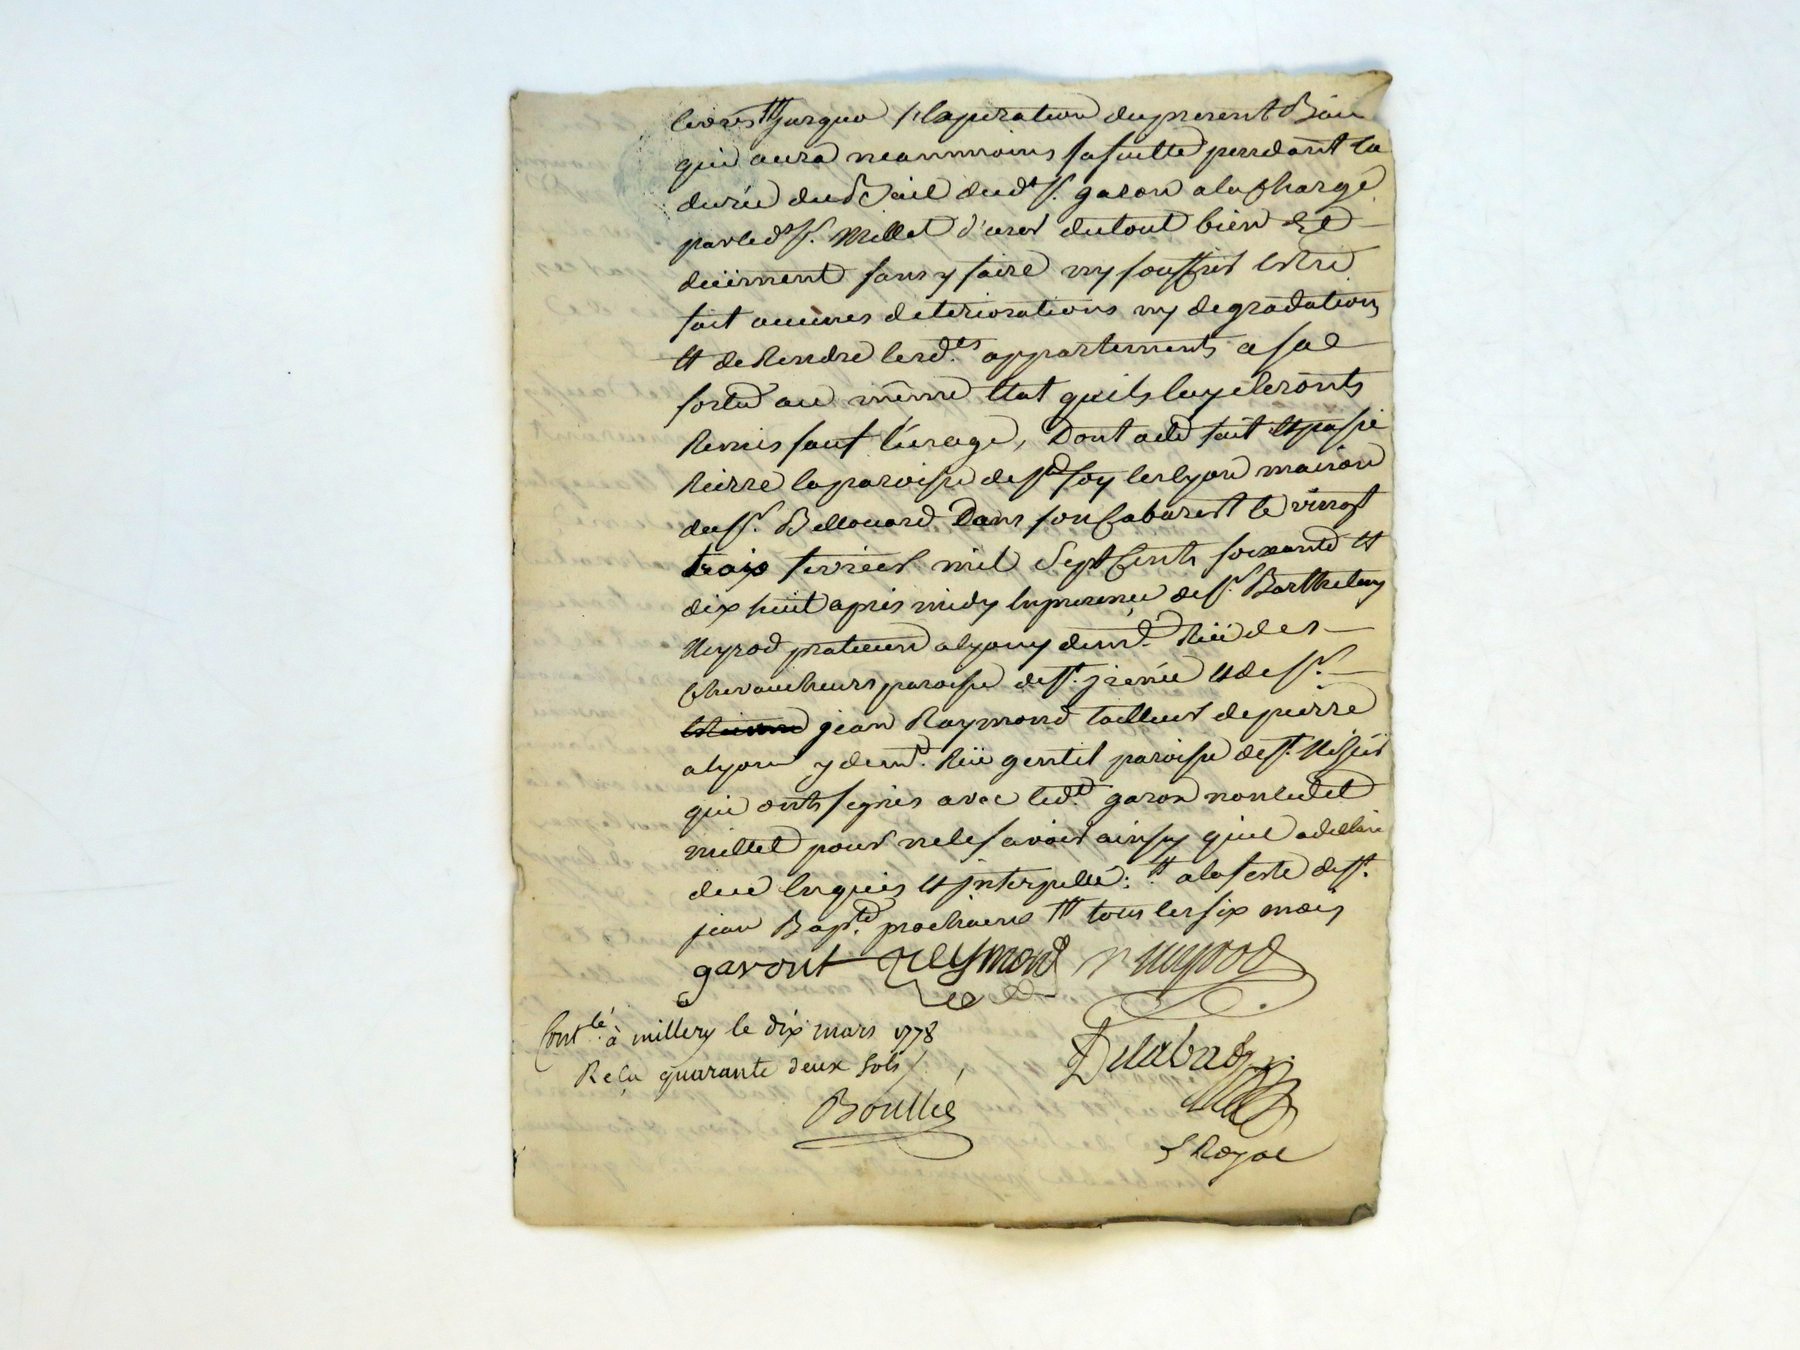 livres # jusqua l'Expiration du present Bail
qui aura neanmoins sa suitte pendant la
durée dud bail dudt Sr. garon a la Charge
par led Sr. Millet d'user du tout bien Et
duëment sans y faire ny souffrir Estre
fait aucunes deteriorations ny degradations
Et de Rendre lesd.ts appartements a sa
sortie au même Etat quils luy seronts
Remis sauf l'usage, Dont acte fait Et passé
Riere la paroisse de Ste foy les lyon maison
du Sr. Bellouard Dans son Cabaret le vingt
trois fevrier mil Sept Cents soixante Et
dix huit apres midy En presence de Sr. Barthelemy
Neyrod praticien a lyon y demt. Rüe des
Chevaucheurs paroisse de St. jrenée Et de Sr.
jean Raymond tailleur de pierre
a lyon y demt. Rüe gentil paroisse de St. Nisier
qui onts signés avec led. garon non ledit
millet pour ne le savoir ainsy quil a declaré
de ce Enquis Et jnterpellé: # a la feste de St.
jean Bapte. prochaine # tous les six mois
garont Reymond Neyrod
Contlé. à millery le dix mars 1778
Reçu quarante deux sols
Delabad
Boullié
N Royal